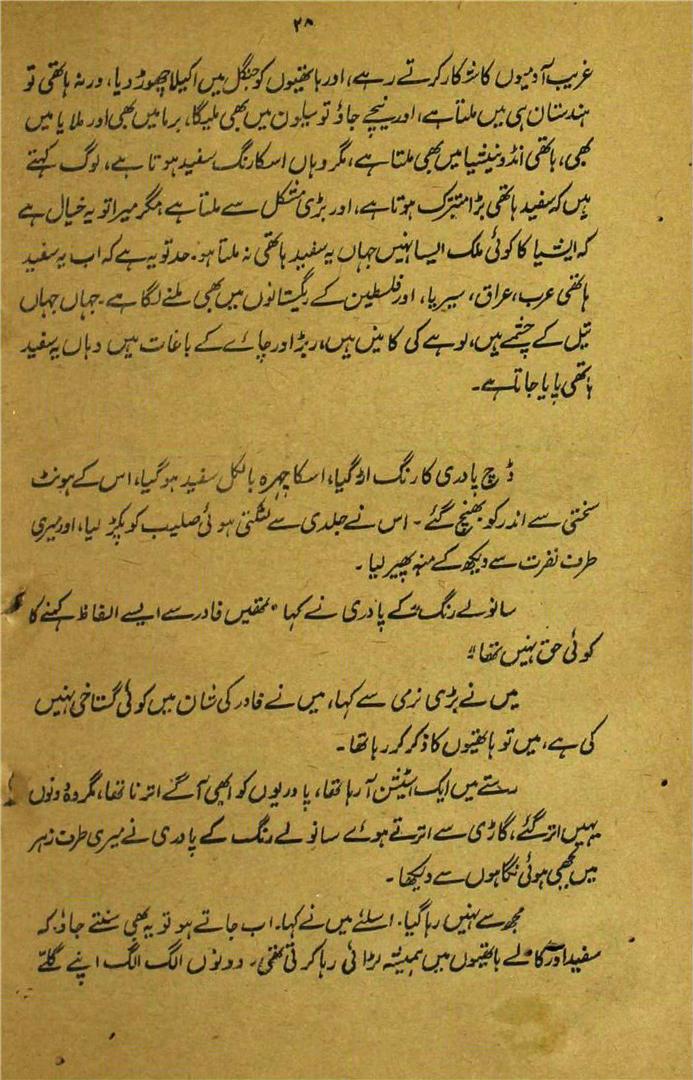 ۲۸
غریب آدمیوں کا شکار کرتے رہے، اور ہاتھیوں کو جنگل میں اکیلا چھوڑ دیا، ورنہ ہاتھی تو
ہندستان ہی میں ملتا ہے، اور نیچے جاؤ تو سیلون میں بھی ملیگا، برما میں بھی اور ملایا میں
بھی، ہاتھی انڈونیشیا میں بھی ملتا ہے، مگر وہاں اسکا رنگ سفید ہوتا ہے، لوگ کہتے
ہیں کہ سفید ہاتھی بڑا متبرک ہوتا ہے، اور بڑی مشکل سے ملتا ہے مگر میرا تو یہ خیال ہے
کہ ایشیا کا کوئی ملک ایسا نہیں جہاں یہ سفید ہاتھی نہ ملتا ہو۔ حد تو یہ ہے کہ اب یہ سفید
ہاتھی عرب، عراق، سیریا، اور فلسطین کے ریگستانوں میں بھی ملنے لگا ہے۔ جہاں جہاں
تیل کے چشمے ہیں، لوہے کی کانیں ہیں، ربڑ اور چائے کے باغات ہیں وہاں یہ سفید
ہاتھی پایا جاتا ہے۔
ڈچ پادری کا رنگ اڑ گیا، اسکا چہرہ بالکل سفید ہوگیا، اس کے ہونٹ
سختی سے اندر کو بھنچ گئے۔ اس نے جلدی سے لٹکتی ہوئی صلیب کو پکڑ لیا، اور میری
طرف نفرت سے دیکھ کے منہ پھیر لیا۔
سانولے رنگ کے پادری نے کہا "تمھیں فادر سے ایسے الفاظ کہنے کا
کوئی حق نہیں تھا"
میں نے بڑی نرمی سے کہا، میں نے فادر کی شان میں کوئی گستاخی نہیں
کی ہے، میں تو ہاتھیوں کا ذکر کر رہا تھا۔
رستے میں ایک اسٹیشن آرہا تھا، پادریوں کو ابھی آگے اترنا تھا، مگر وہ دونوں
یہیں اتر گئے، گاڑی سے اترتے ہوئے سانولے رنگ کے پادری نے میری طرف زہر
میں بجھی ہوئی نگاہوں سے دیکھا۔
مجھ سے نہیں رہا گیا۔ اسلئے میں نے کہا۔ اب جاتے ہو تو یہ بھی سنتے جاؤ، کہ
سفید اور کالے ہاتھیوں میں ہمیشہ لڑائی رہا کرتی تھی۔ دونوں الگ الگ اپنے گلے